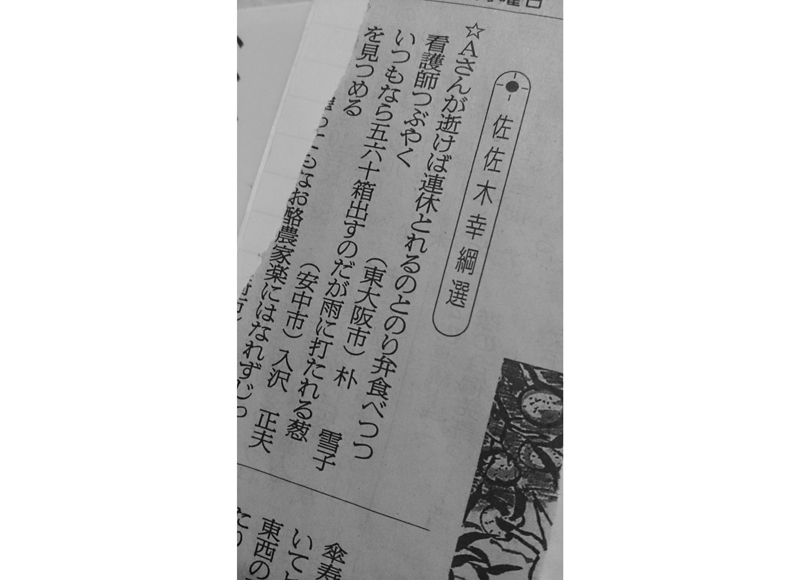 曜日
佐佐木幸綱選
☆Aさんが逝けば連休とれるのとのり弁食べつつ
看護師つぶやく　（東大阪市）朴　雪子
いつもなら五六十箱出すのだが雨に打たれる葱
を見つめる　（安中市）入沢　正夫
もなお酪農家楽にはなれずじっ
傘寿
いて
東西の
たり